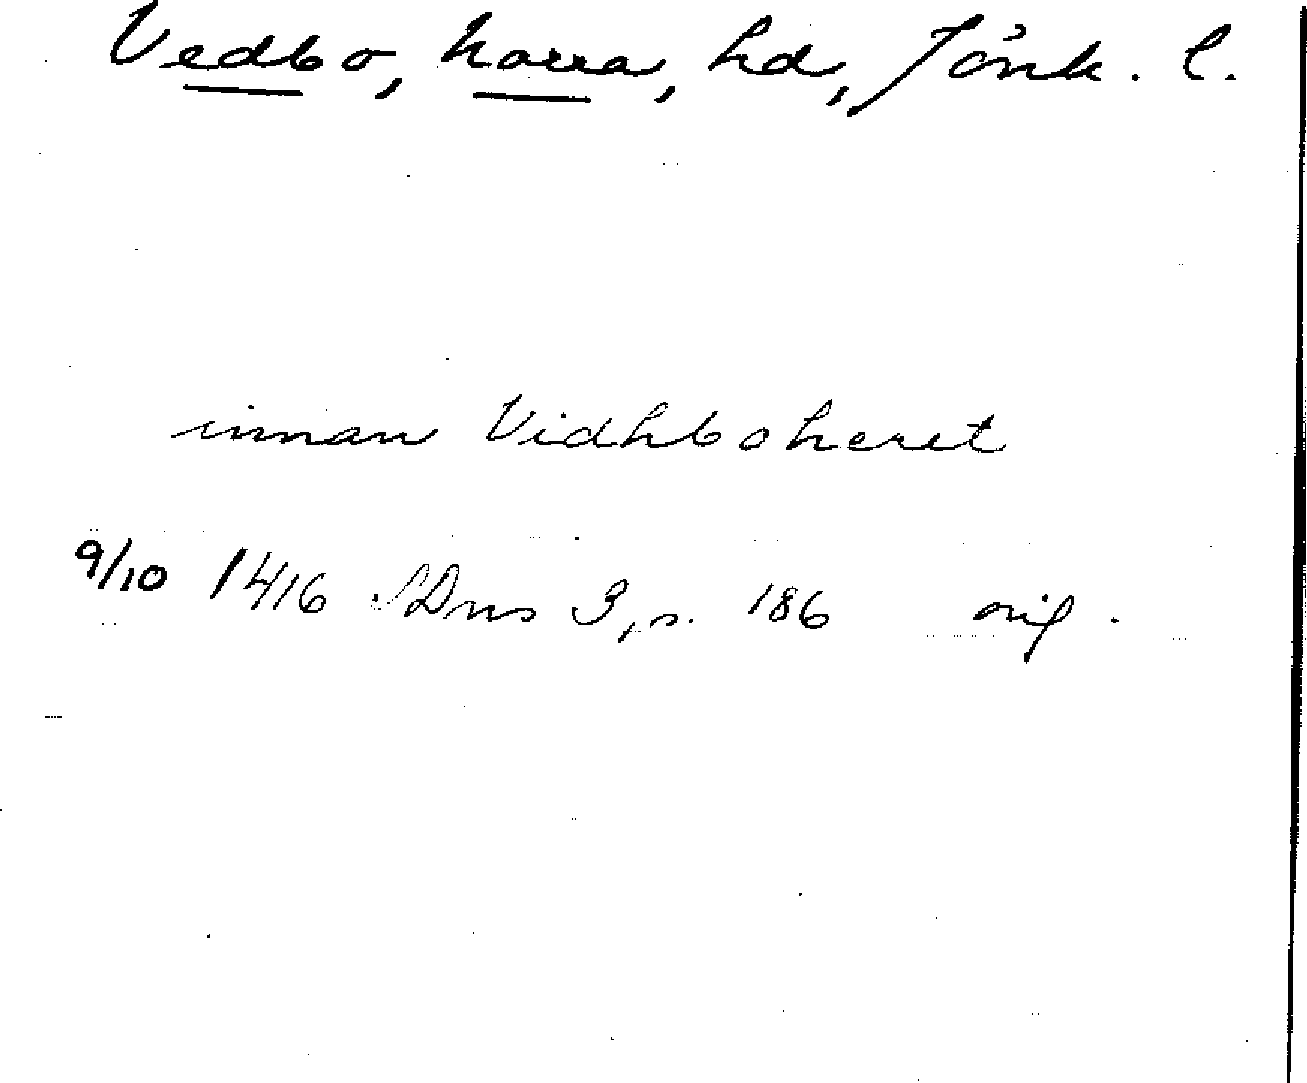 Vedbo, Norra, hd, Jönk. l.
innan Vidhboheret
9/10 1416 SDns 3, s. 186 orig.